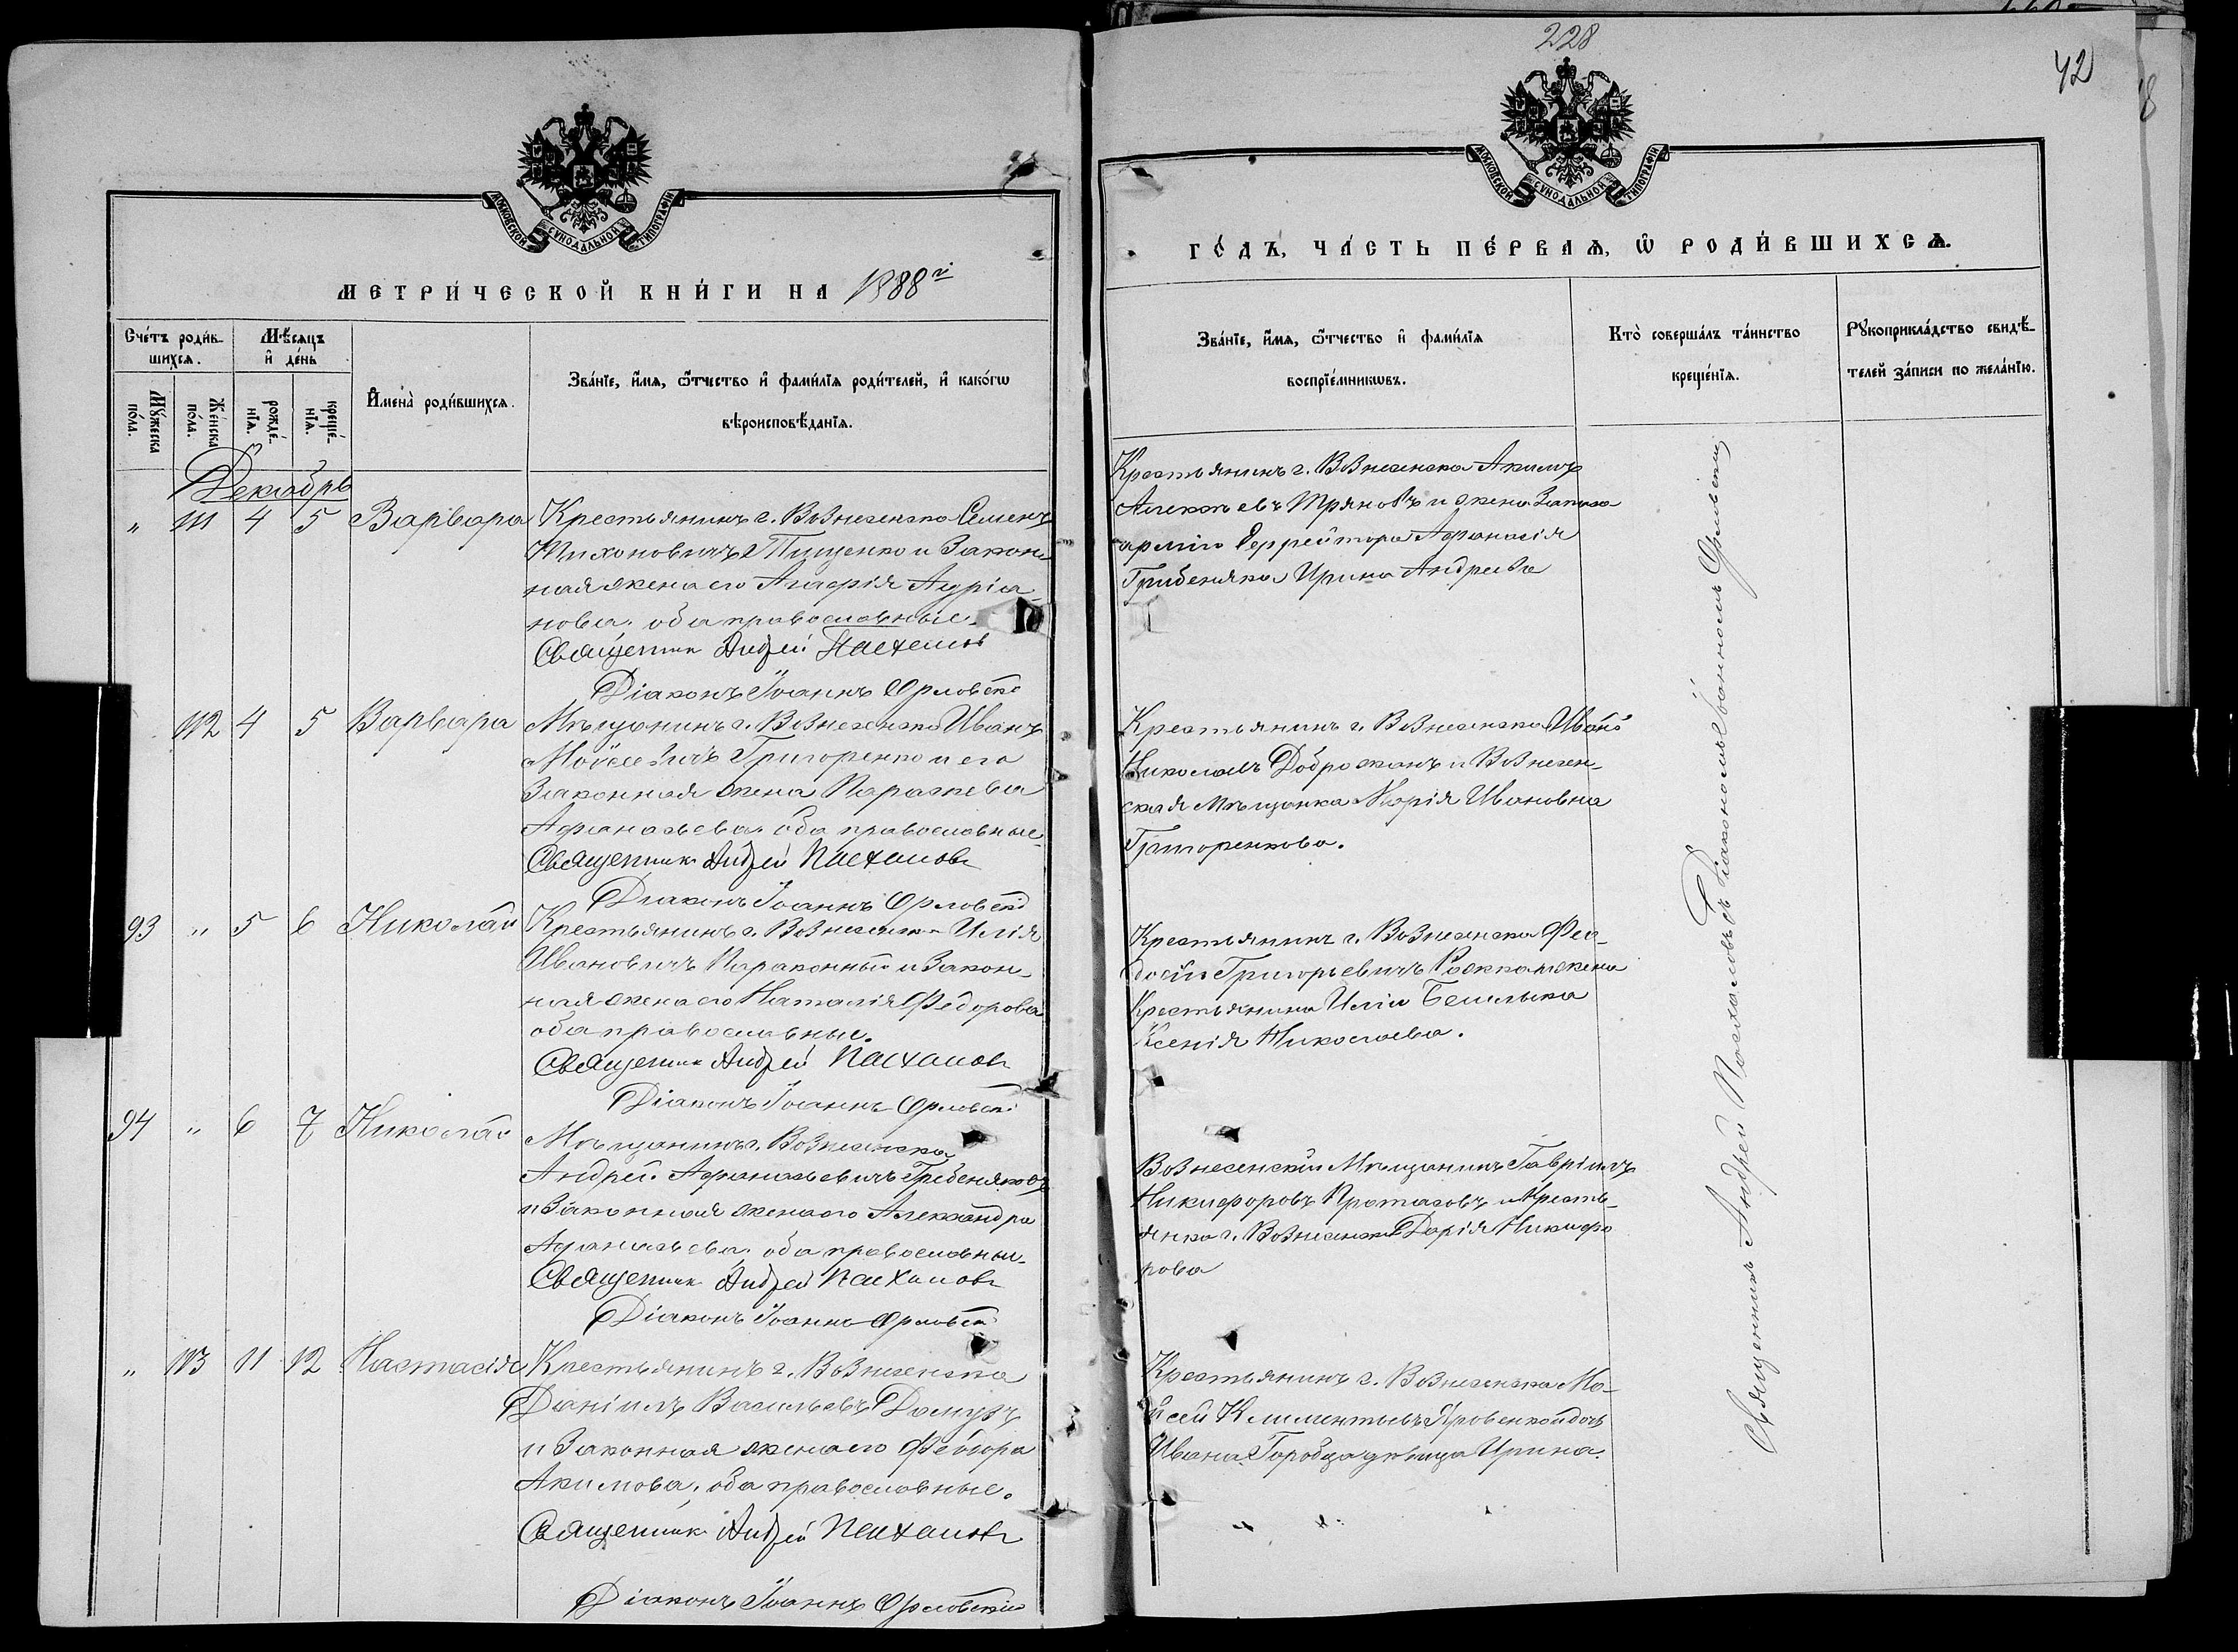 228
42
МОСКОВСКОЙ СѴНОДАЛЬНОЙ ТИПОГРАФІИ
МЕТРИ́ЧЕСКОЙ КНИ́ГИ НА 1888й
Сче́тъ роди́в-
шихся.
Мѣ́сяцъ
и҆ де́нь
Мꙋ́жеска
по́ла.
Же́нска
по́ла.
рожде́-
нїя.
креще́-
нїя.
И҆мена̀ роди́вшихся.
Зва́нїе, и҆́мя, ѻ҆́тчество и҆ фами́лїя роди́телей, и҆ како́гѡ
вѣроисповѣ́данїя.
Декабрь
" 111 4 5 Варвара Крестьянинъ г. Вознесенска Семенъ
Тихоновичъ Пищенко и закон-
ная жена его Агафія Адріа-
нова, оба православные.
Священникъ Андрей Пасхаловъ
Діаконъ Іоаннъ Орловскій
112 4 5 Варвара Мѣщанинъ г. Вознесенска Иванъ
Мойсеевичъ Григоренко и его
законная жена Параскева
Афанасьева, оба православные.
Священникъ Андрей Пасхаловъ
Діаконъ Іоаннъ Орловскій
93 " 5 6 Николай Крестьянинъ г. Вознесенска Илія
Ивановичъ Параконный и закон-
ная жена его Наталія Федорова
оба православные.
Священникъ Андрей Пасхаловъ
Діаконъ Іоаннъ Орловскій
94 " 6 7 Николай Мѣщанинъ г. Вознесенска
Андрей Афанасьевичъ Гребеняковъ
и законная жена его Александра
Афанасьева, оба православные.
Священникъ Андрей Пасхаловъ
Діаконъ Іоаннъ Орловскій
" 113 11 12 Настасія Крестьянинъ г. Вознесенска
Даніилъ Васильевъ
и законная жена его Феодора
Акимова, оба православные.
Священникъ Андрей Пасхаловъ
Діаконъ Іоаннъ Орловскій
МОСКОВСКОЙ СѴНОДАЛЬНОЙ ТИПОГРАФІИ
ГО́ДЪ, ЧА́СТЬ ПЕ́РВАѦ, Ѡ҆ РОДИ́ВШИХСѦ.
Зва́нїе, и҆́мя, ѻ҆́тчество и҆ фами́лїя
воспрїе́мникѡвъ.
Кто̀ соверша́лъ та́инство
креще́нїя.
Рꙋкоприкла́дство свидѣ́-
телей за́писи по жела́нїю.
Крестьянинъ г. Вознесенска Акимъ
Алексѣевъ Тряновъ и жена запаса
арміи Ефрейтора Афанасія
Грибеняка Ирина Андреева
Крестьянинъ г. Вознесенска Иванъ
Николаевъ Доброжанъ и Вознесен-
ская мѣщанка Марія Ивановна
Григоренкова.
Крестьянинъ г. Вознесенска Фео-
досій Григорьевичъ жена
Крестьянина Иліи
Ксенія Николаева.
Вознесенскій мѣщанинъ Гавріилъ
Никифоровъ Протасовъ и Кресть-
янка г. Вознесенска Дарія Никифо
рова
Крестьянинъ г. Вознесенска Мо-
исей Климентьевъ Яровенко и дочь
Ивана Горобца дѣвица Ирина.
Священникъ Андрей Пасхаловъ съ Діакономъ Іоанномъ Орловскимъ